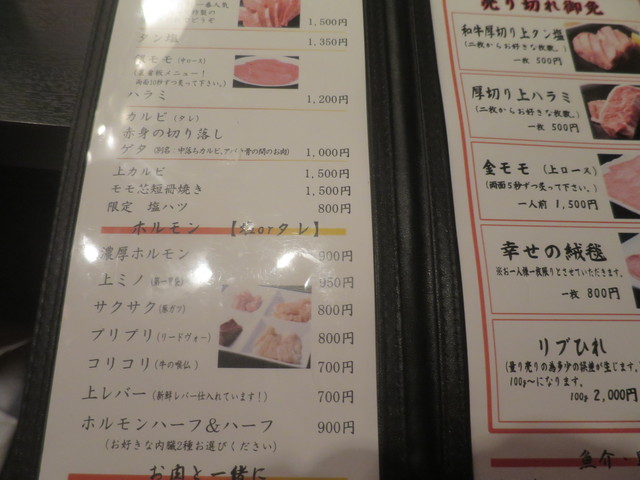 一番人気
特製の
1,500円
タン塩 1,350円
モモ (中ロース)
(看板メニュー!
両面10秒ずつ炙って下さい。)
ハラミ 1,200円
カルビ (タレ)
赤身の切り落し
ゲタ (別名・中落ちカルビ。アバラ骨の間のお肉) 1,000円
上カルビ 1,500円
モモ芯短冊焼き 1,500円
限定 塩ハツ 800円
ホルモン 【塩orタレ】
濃厚ホルモン 900円
上ミノ (第一胃袋) 950円
サクサク (豚ガツ) 800円
プリプリ (リードヴォー) 800円
コリコリ (牛の喉仏) 700円
上レバー (新鮮レバー仕入れています!) 700円
ホルモンハーフ&ハーフ 900円
(お好きな内臓2種お選びください)
お肉と一緒に
売り切れ御免
和牛厚切り上タン塩
(二枚からお好きな枚数。)
一枚 500円
厚切り上ハラミ
(二枚からお好きな枚数。)
一枚 500円
金モモ (上ロース)
(両面5秒ずつ炙って下さい。)
一人前 1,500円
幸せの絨毯
※お一人様一枚限りとさせていただきます。
一枚 800円
リブひれ
(量り売りの為多少の誤差が生じます。
100g〜になります。
100g 2,000円
魚介・